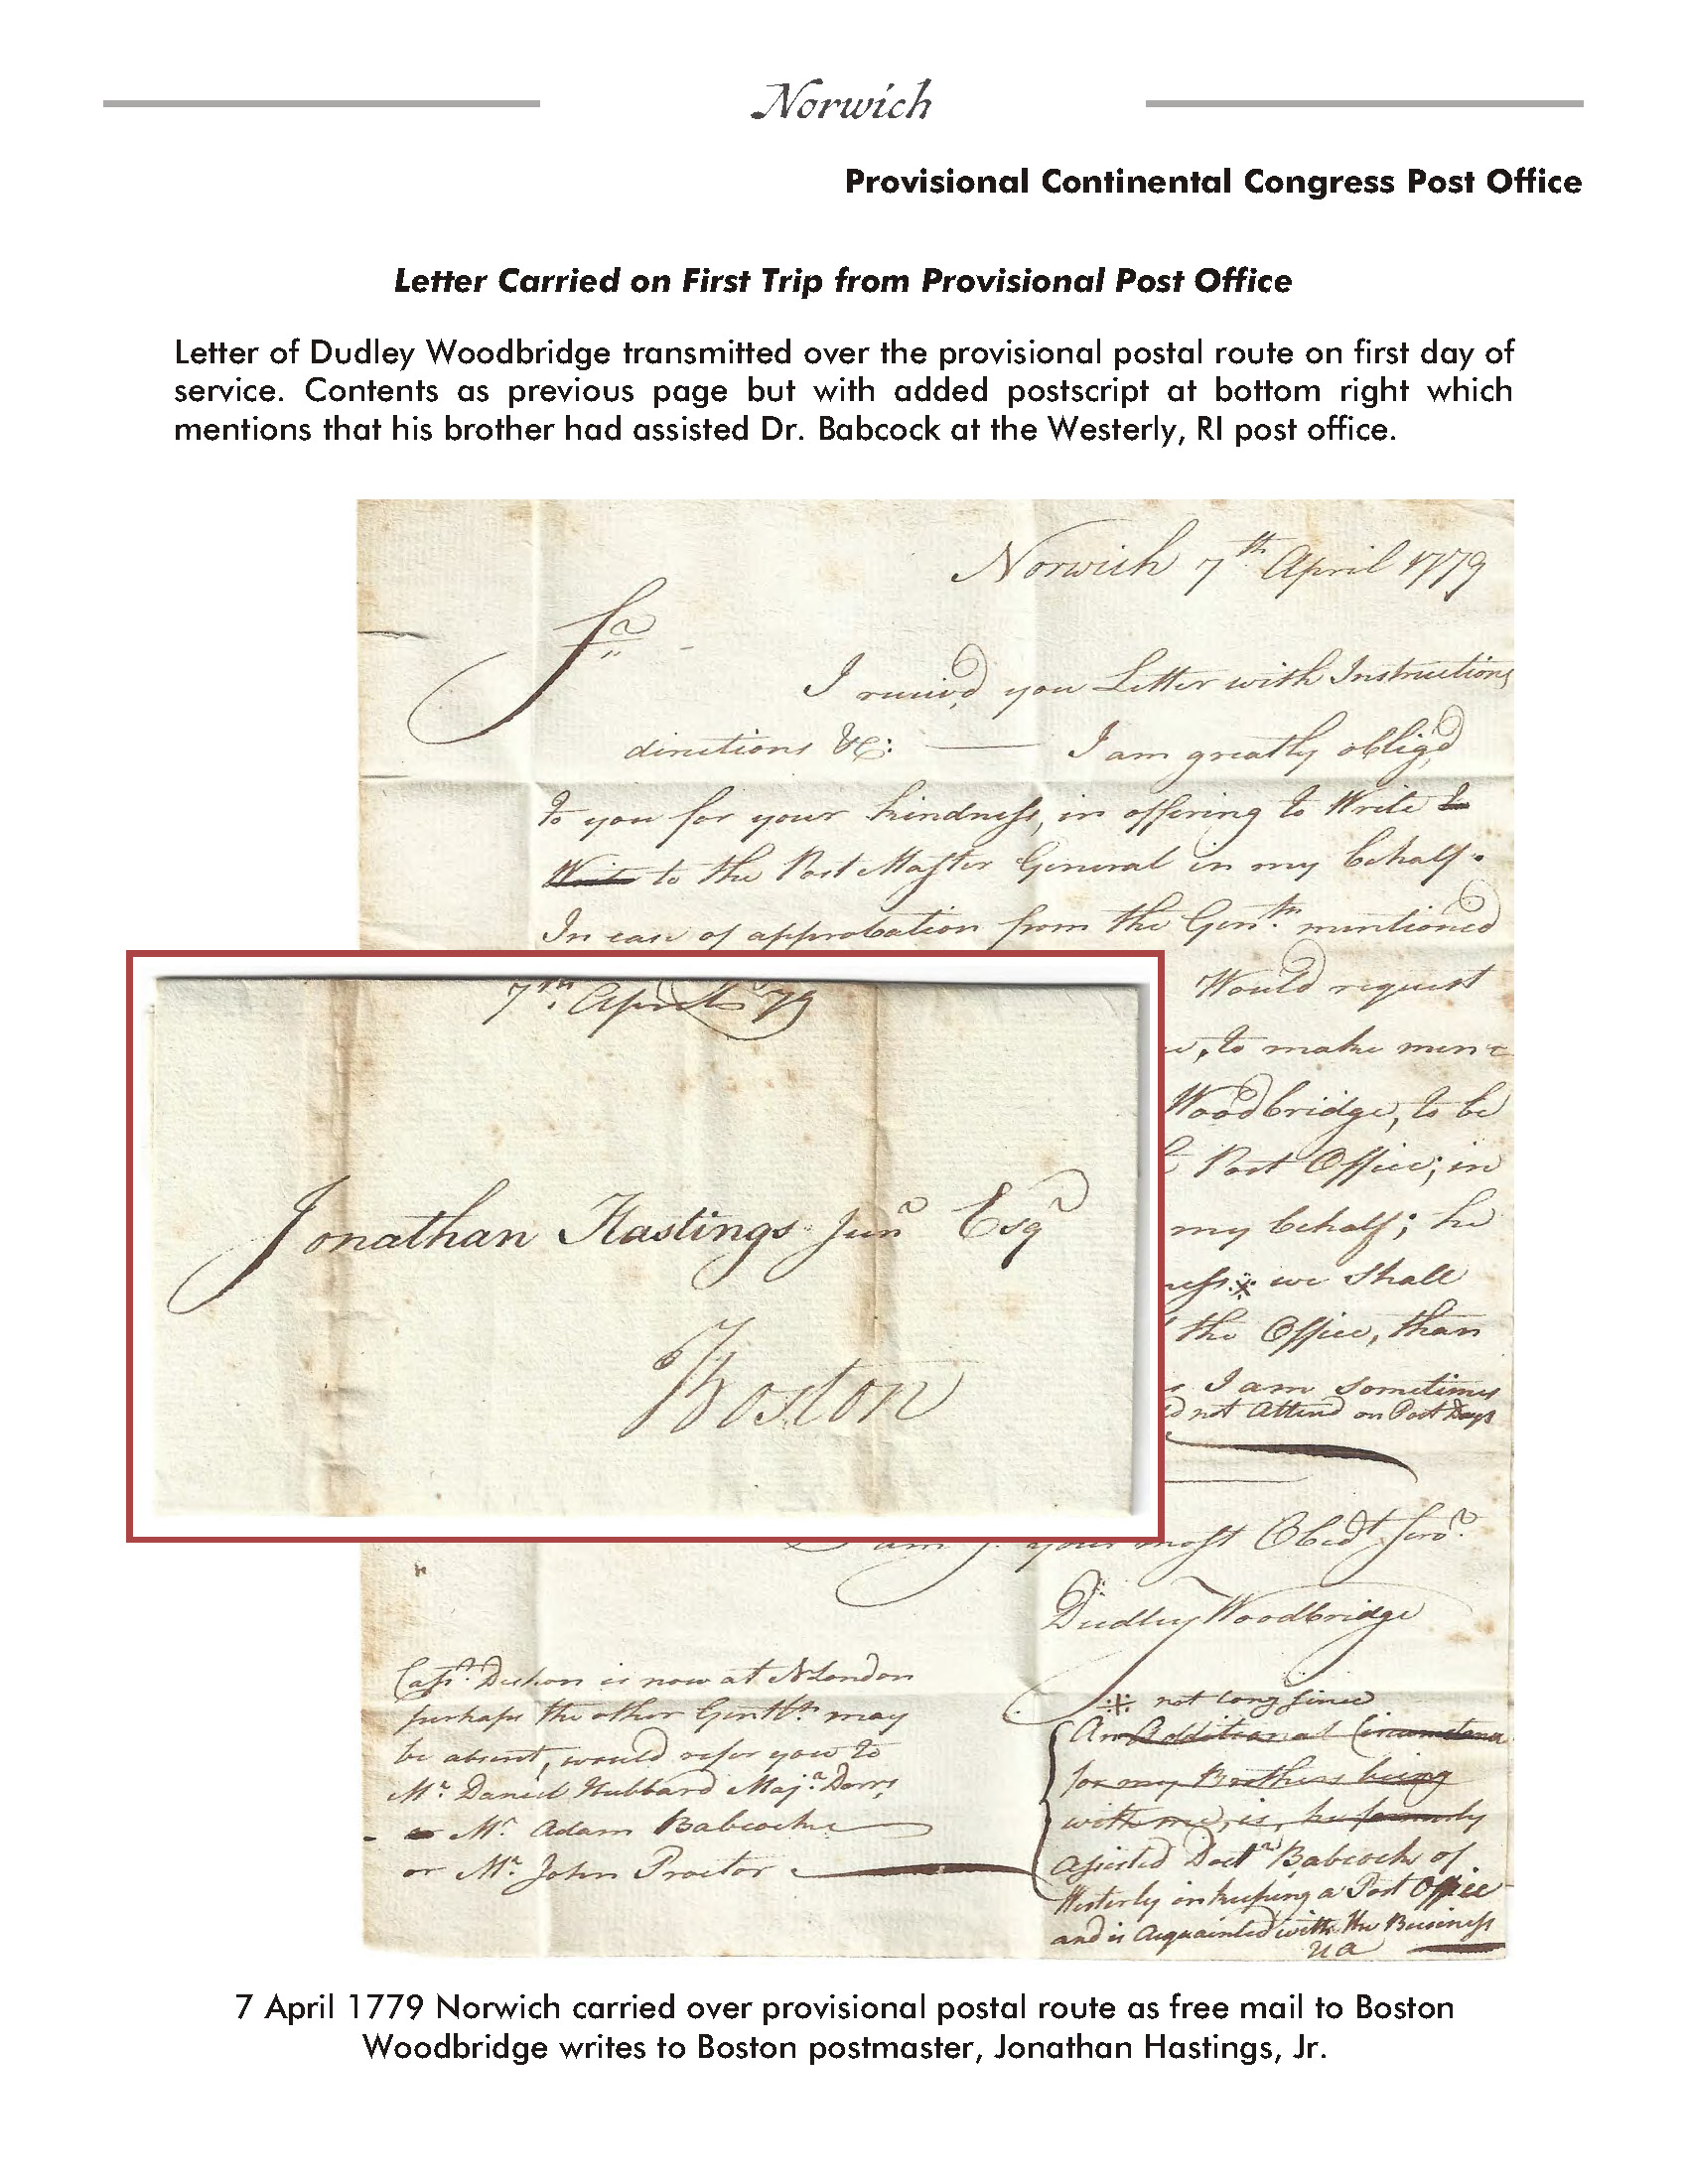 Norwich
Provisional Continental Congress Post Office
Letter Carried on First Trip from Provisional Post Office
Letter of Dudley Woodbridge transmitted over the provisional postal route on first day of
service. Contents as previous page but with added postscript at bottom right which
mentions that his brother had assisted Dr. Babcock at the Westerly, RI post office.
Norwich 7th April 1779
Sr
I receiv'd you Letter with Instructions
directions &c: I am greatly oblig'd
to you for your kindness, in offering to Write to
Write to the Post Master General in my behalf.
In case of approbation from the Gentn. mentioned
Would request
, to make men
Woodbridge, to be
Post Office; in
my behalf; he
we shall
the Office, than
I am sometimes
not Attend on Post Days
7th. April 79
Jonathan Hastings Junr Esqr
Boston
your most Obedt Servt.
Dudley Woodbridge
Capt. Deshon is now at N London
perhaps the other Gentln. may
be absent, would refer you to
Mr. Daniel Hubbard Majr. Dorrs,
or Mr. Adam Babcocke
or Mr. John Proctor
※ not long since
An Additional Circumstance
for my Brothers being
with me, is, he formerly
assisted Doctr Babcock of
Westerly in keeping a Post Office
and is Acquainted with the Business
7 April 1779 Norwich carried over provisional postal route as free mail to Boston
Woodbridge writes to Boston postmaster, Jonathan Hastings, Jr.